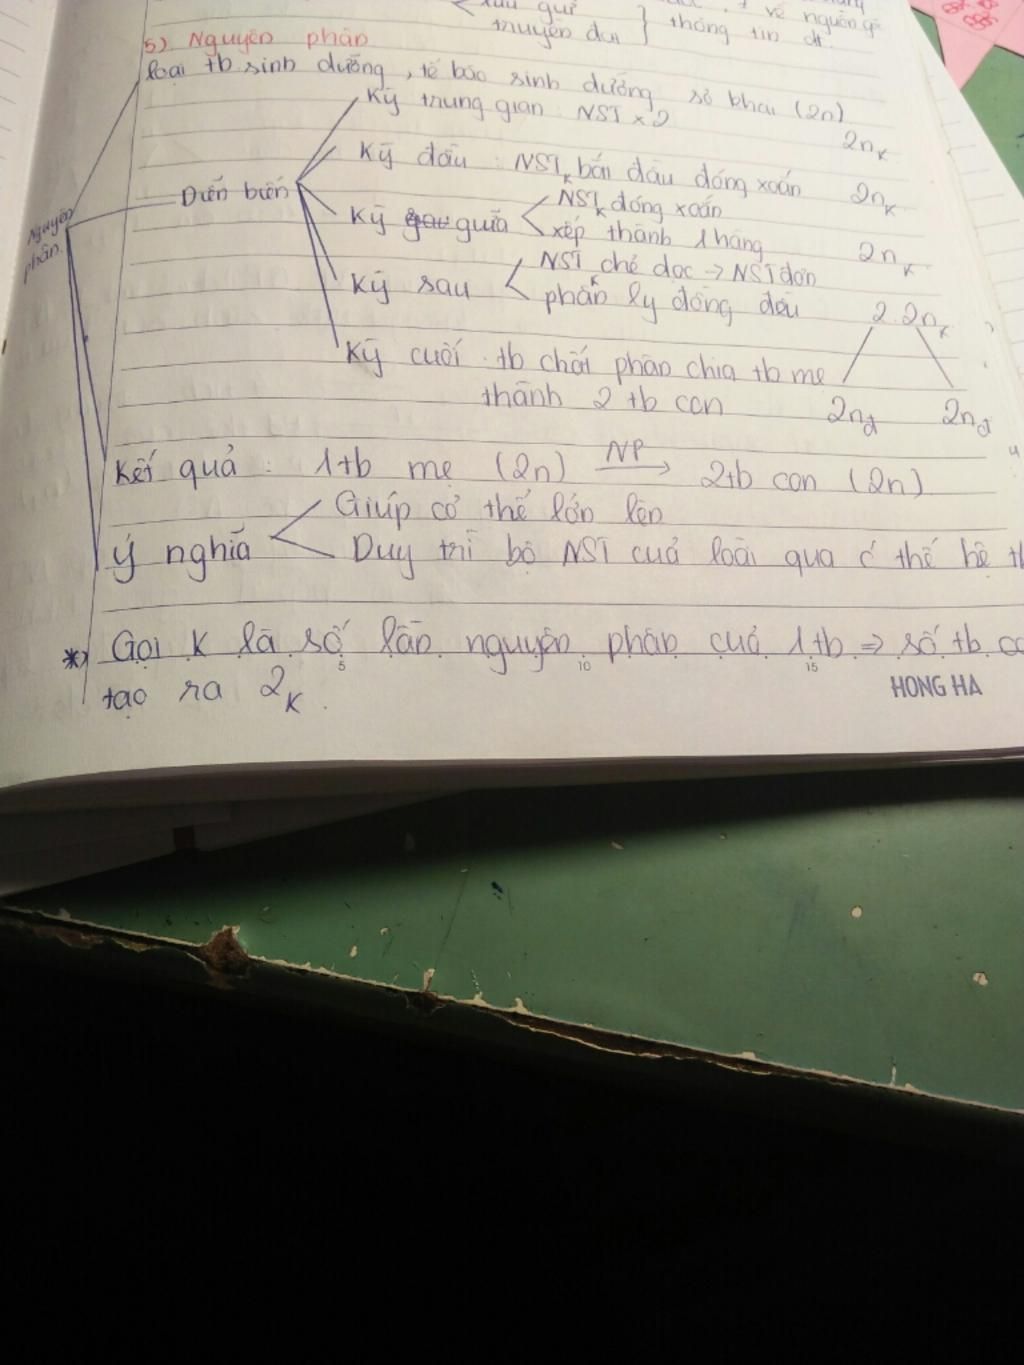 truyền đạt } thông tin dt.
về nguồn gốc
5) Nguyên phân
loại tb sinh dưỡng, tế bào sinh dưỡng sơ khai (2n)
Kỳ trung gian: NST x 2 2nK
Nguyên phân. Diễn biến Kỳ đầu: NSTK bắt đầu đóng xoắn 2nK
Kỳ giữa NSTK đóng xoắn
xếp thành 1 hàng 2nK
Kỳ sau NSTK chẻ dọc → NST đơn
phân ly đồng đều 2.2nK
Kỳ cuối tb chất phân chia tb mẹ
thành 2 tb con 2nđ 2nđ
Kết quả: 1tb mẹ (2n) NP → 2tb con (2n)
Ý nghĩa Giúp cơ thể lớn lên
Duy trì bộ NST của loài qua thế hệ
*) Gọi K là số lần nguyên phân của 1tb ⇒ số tb
5 10 15
tạo ra 2K.
HONG HA